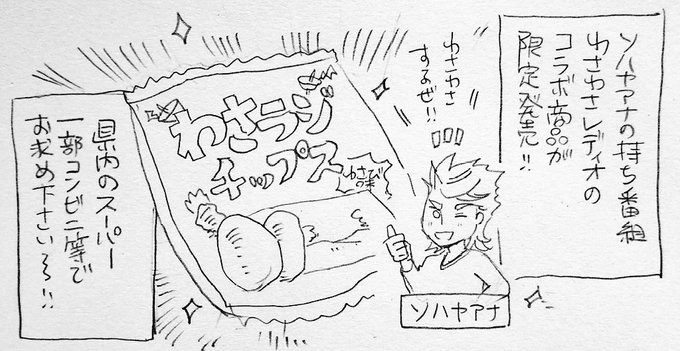 ソハヤアナの持ち番組
わさわさレディオの
コラボ商品が
限定発売!!
わさわさ
するぜ!!
わさラジ
チップス
わさび味
ソハヤアナ
県内のスーパー
一部コンビニ等で
お求め下さい〜!!